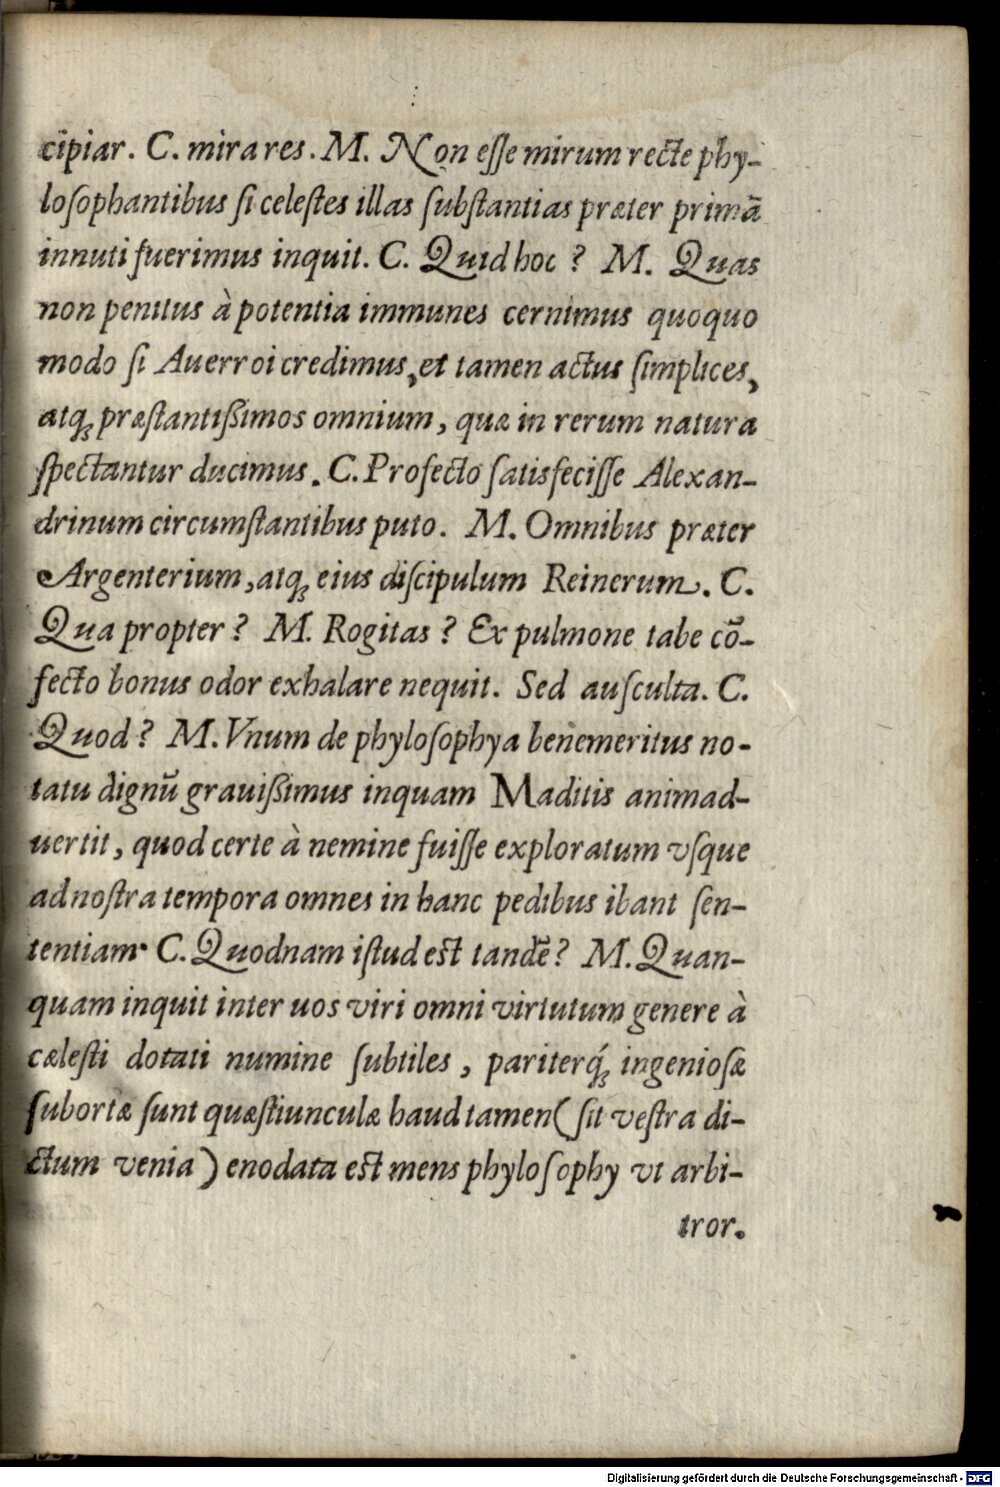 cipiar. C. mira res. M. Non eſſe mirum recte phy-
loſophantibus ſi celeſtes illas ſubſtantias præter primā
innuti fuerimus inquit. C. Quid hoc ? M. Quas
non penitus à potentia immunes cernimus quoquo
modo ſi Auerroi credimus, et tamen actus ſimplices,
atqꝫ præſtantißimos omnium, quæ in rerum natura
ſpectantur ducimus. C. Profecto ſatisfeciſſe Alexan-
drinum circumſtantibus puto. M. Omnibus præter
Argenterium, atqꝫ eius diſcipulum Reinerum. C.
Qua propter ? M. Rogitas ? Ex pulmone tabe cō-
fecto bonus odor exhalare nequit. Sed auſculta. C.
Quod ? M. Vnum de phyloſophya benemeritus no-
tatu dignū grauißimus inquam Maditis animad-
uertit, quod certe à nemine fuiſſe exploratum vſque
ad noſtra tempora omnes in hanc pedibus ibant ſen-
tentiam. C. Quodnam iſtud est tandē? M. Quan-
quam inquit inter uos viri omni virtutum genere à
cæleſti dotati numine ſubtiles, pariterqꝫ́ ingenioſæ
ſubortæ ſunt quæſtiunculæ haud tamen (ſit veſtra di-
ctum venia) enodata est mens phyloſophy vt arbi-
tror.
Digitalisierung gefördert durch die Deutsche Forschungsgemeinschaft - DFG